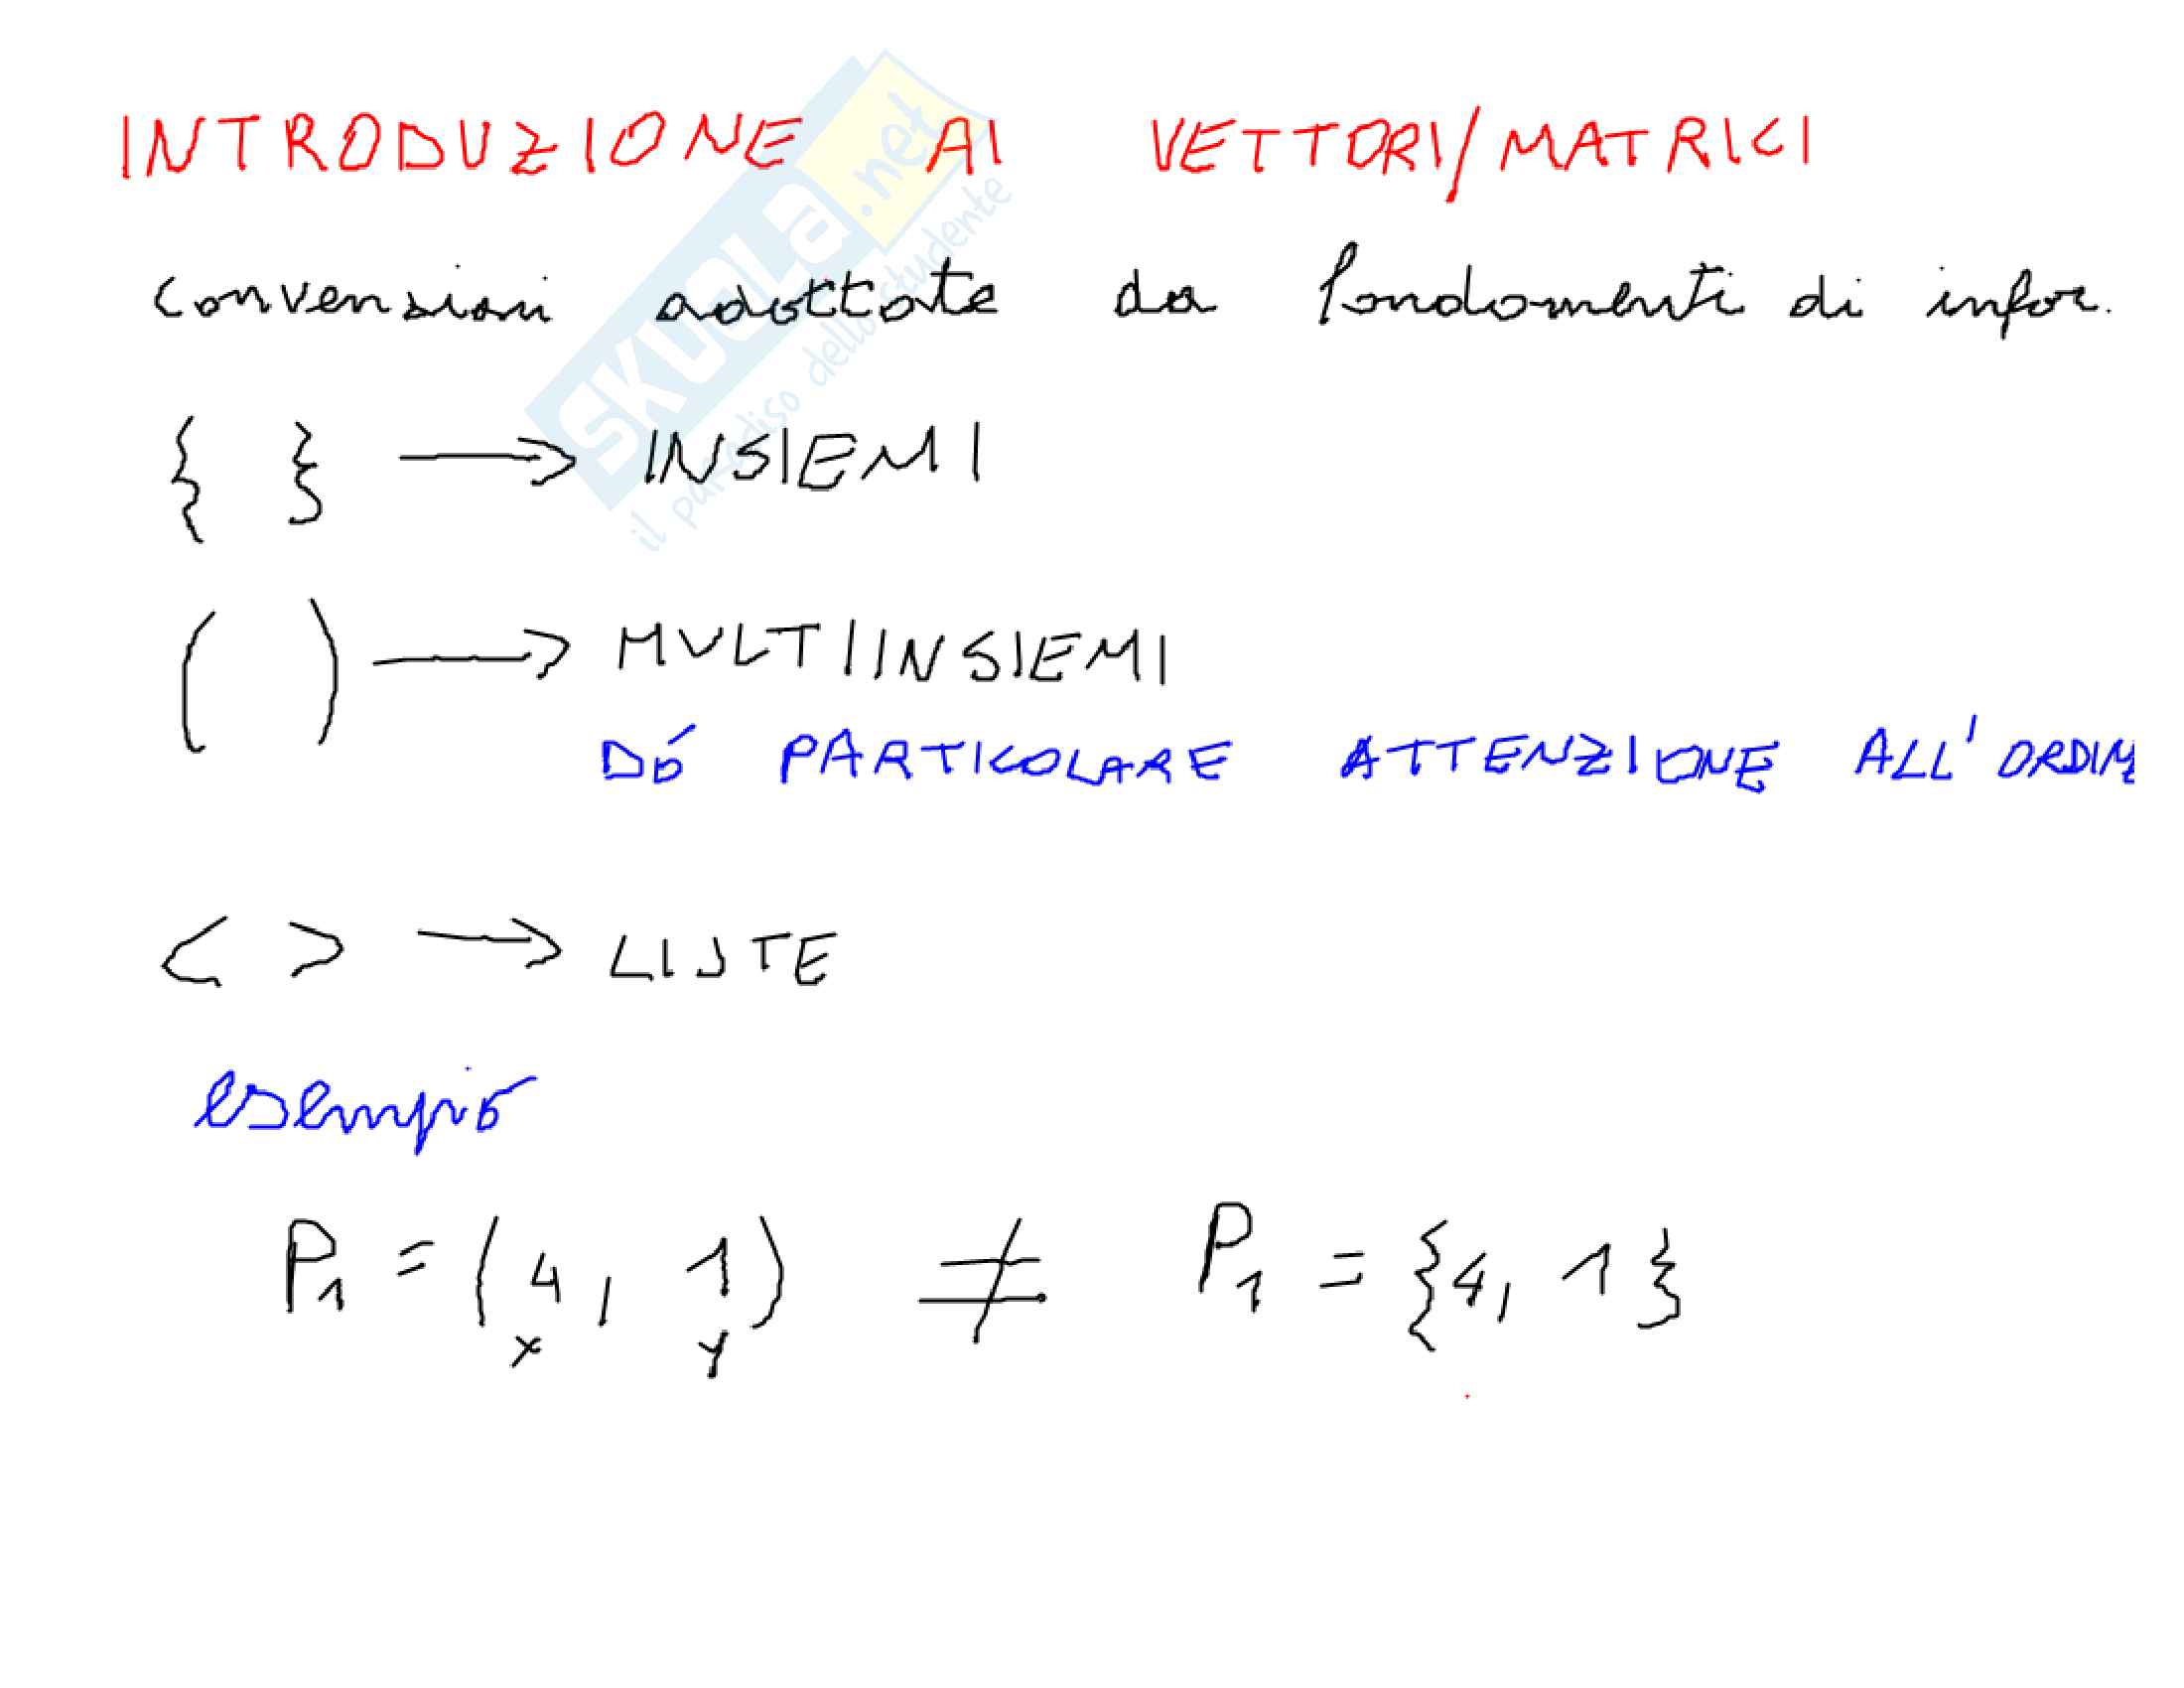 INTRODUZIONE AI VETTORI/MATRICI
convensioni adottate da fondamenti di infor.
{ } → INSIEMI
( ) → MULTIINSIEMI
DÓ PARTICOLARE ATTENZIONE ALL'ORDINE
< > → LISTE
esempio
P₁ = (4, 1) ≠ P₁ = {4, 1}
x y
SKUOLA.net
il paradiso dello studente